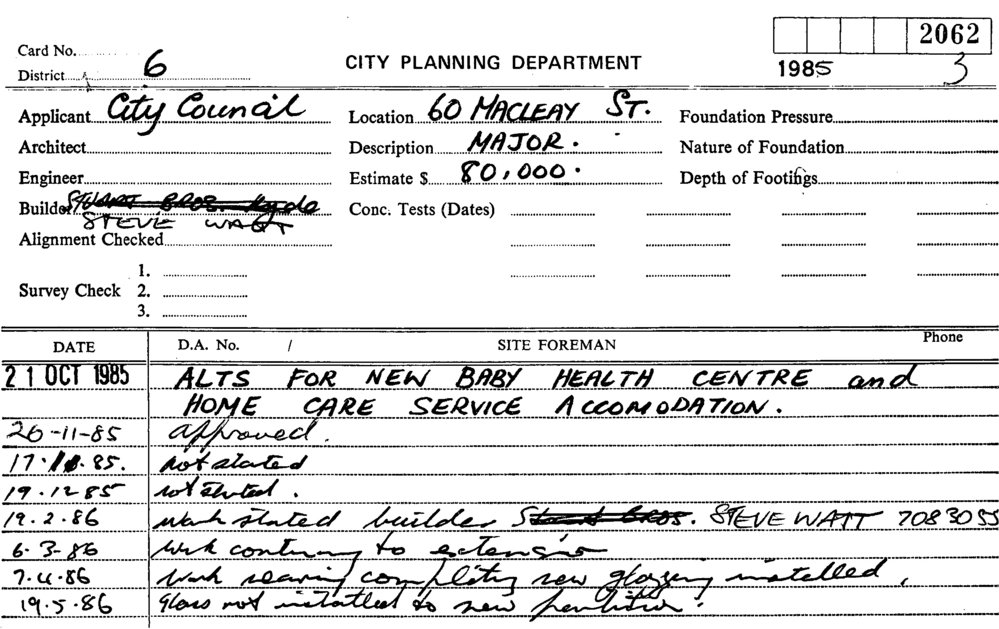 2062
Card No.
District 6
CITY PLANNING DEPARTMENT
1985 3
Applicant City Council
Location 60 MACLEAY ST.
Foundation Pressure
Architect
Description MAJOR.
Nature of Foundation
Engineer
Estimate $ 80,000.
Depth of Footings
Builder STUART BROS. Ryde
STEVE WATT
Conc. Tests (Dates)
Alignment Checked
1.
Survey Check 2.
3.
DATE D.A. No. / SITE FOREMAN Phone
21 OCT 1985 ALTS FOR NEW BABY HEALTH CENTRE and
HOME CARE SERVICE ACCOMODATION.
26-11-85 approved.
17. .85. not stated
19.12.85 not started.
19.2.86 work stated builder BROS. STEVE WATT 7083055
6.3.86 work continuing to extension
7.4.86 work nearing new glazing installed,
19.5.86 Glass not to new